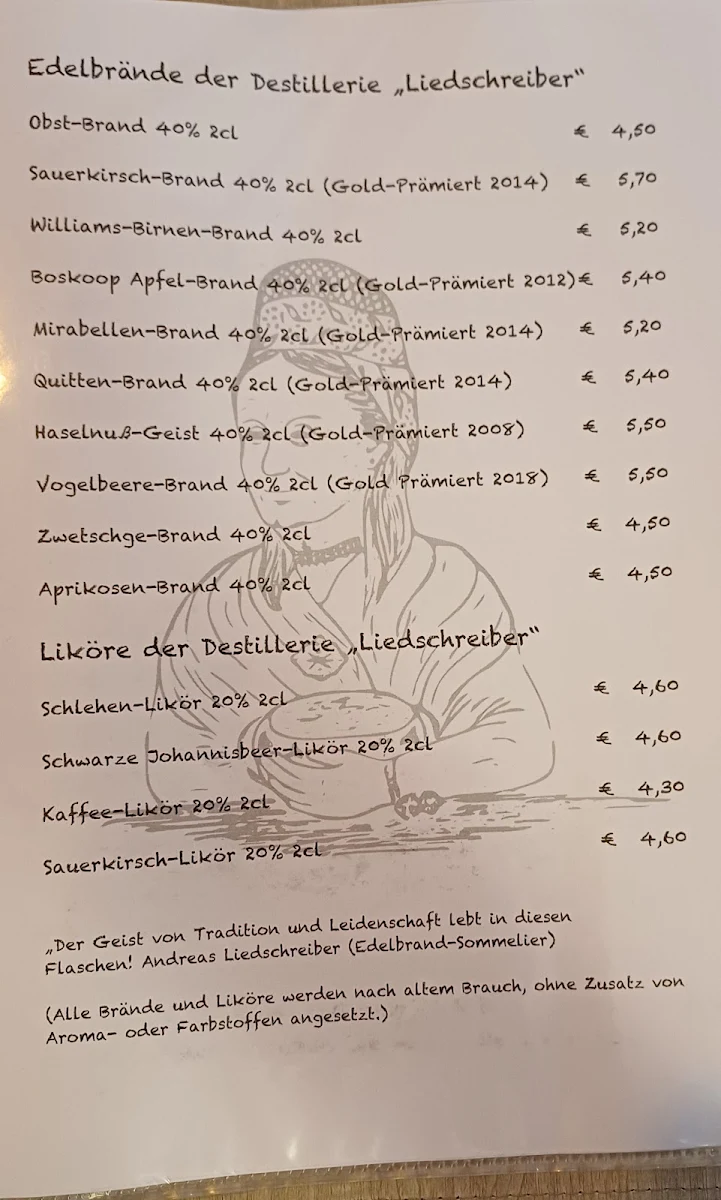 Edelbrände der Destillerie „Liedschreiber“
Obst-Brand 40% 2cl € 4,50
Sauerkirsch-Brand 40% 2cl (Gold-Prämiert 2014) € 5,70
Williams-Birnen-Brand 40% 2cl € 5,20
Boskoop Apfel-Brand 40% 2cl (Gold-Prämiert 2012) € 5,40
Mirabellen-Brand 40% 2cl (Gold-Prämiert 2014) € 5,20
Quitten-Brand 40% 2cl (Gold-Prämiert 2014) € 5,40
Haselnuß-Geist 40% 2cl (Gold-Prämiert 2008) € 5,50
Vogelbeere-Brand 40% 2cl (Gold Prämiert 2018) € 5,50
Zwetschge-Brand 40% 2cl € 4,50
Aprikosen-Brand 40% 2cl € 4,50
Liköre der Destillerie „Liedschreiber“
Schlehen-Likör 20% 2cl € 4,60
Schwarze Johannisbeer-Likör 20% 2cl € 4,60
Kaffee-Likör 20% 2cl € 4,30
Sauerkirsch-Likör 20% 2cl € 4,60
„Der Geist von Tradition und Leidenschaft lebt in diesen
Flaschen! Andreas Liedschreiber (Edelbrand-Sommelier)
(Alle Brände und Liköre werden nach altem Brauch, ohne Zusatz von
Aroma- oder Farbstoffen angesetzt.)